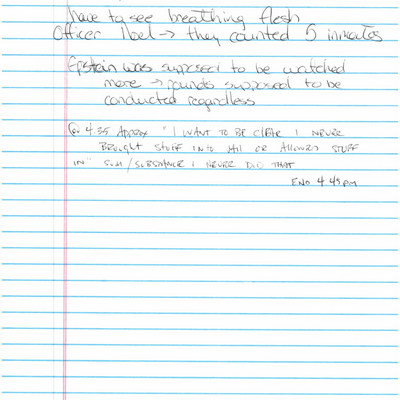 have to see breathing flesh
Officer Noel → they counted 5 inmates
Epstein was supposed to be watched
more → rounds supposed to be
conducted regardless
@ 4:35 Approx "I WANT TO BE CLEAR I NEVER
BROUGHT STUFF INTO HIL OR ALLOWED STUFF
IN" SUM/SUBSTANCE I NEVER DID THAT
END 4:45pm